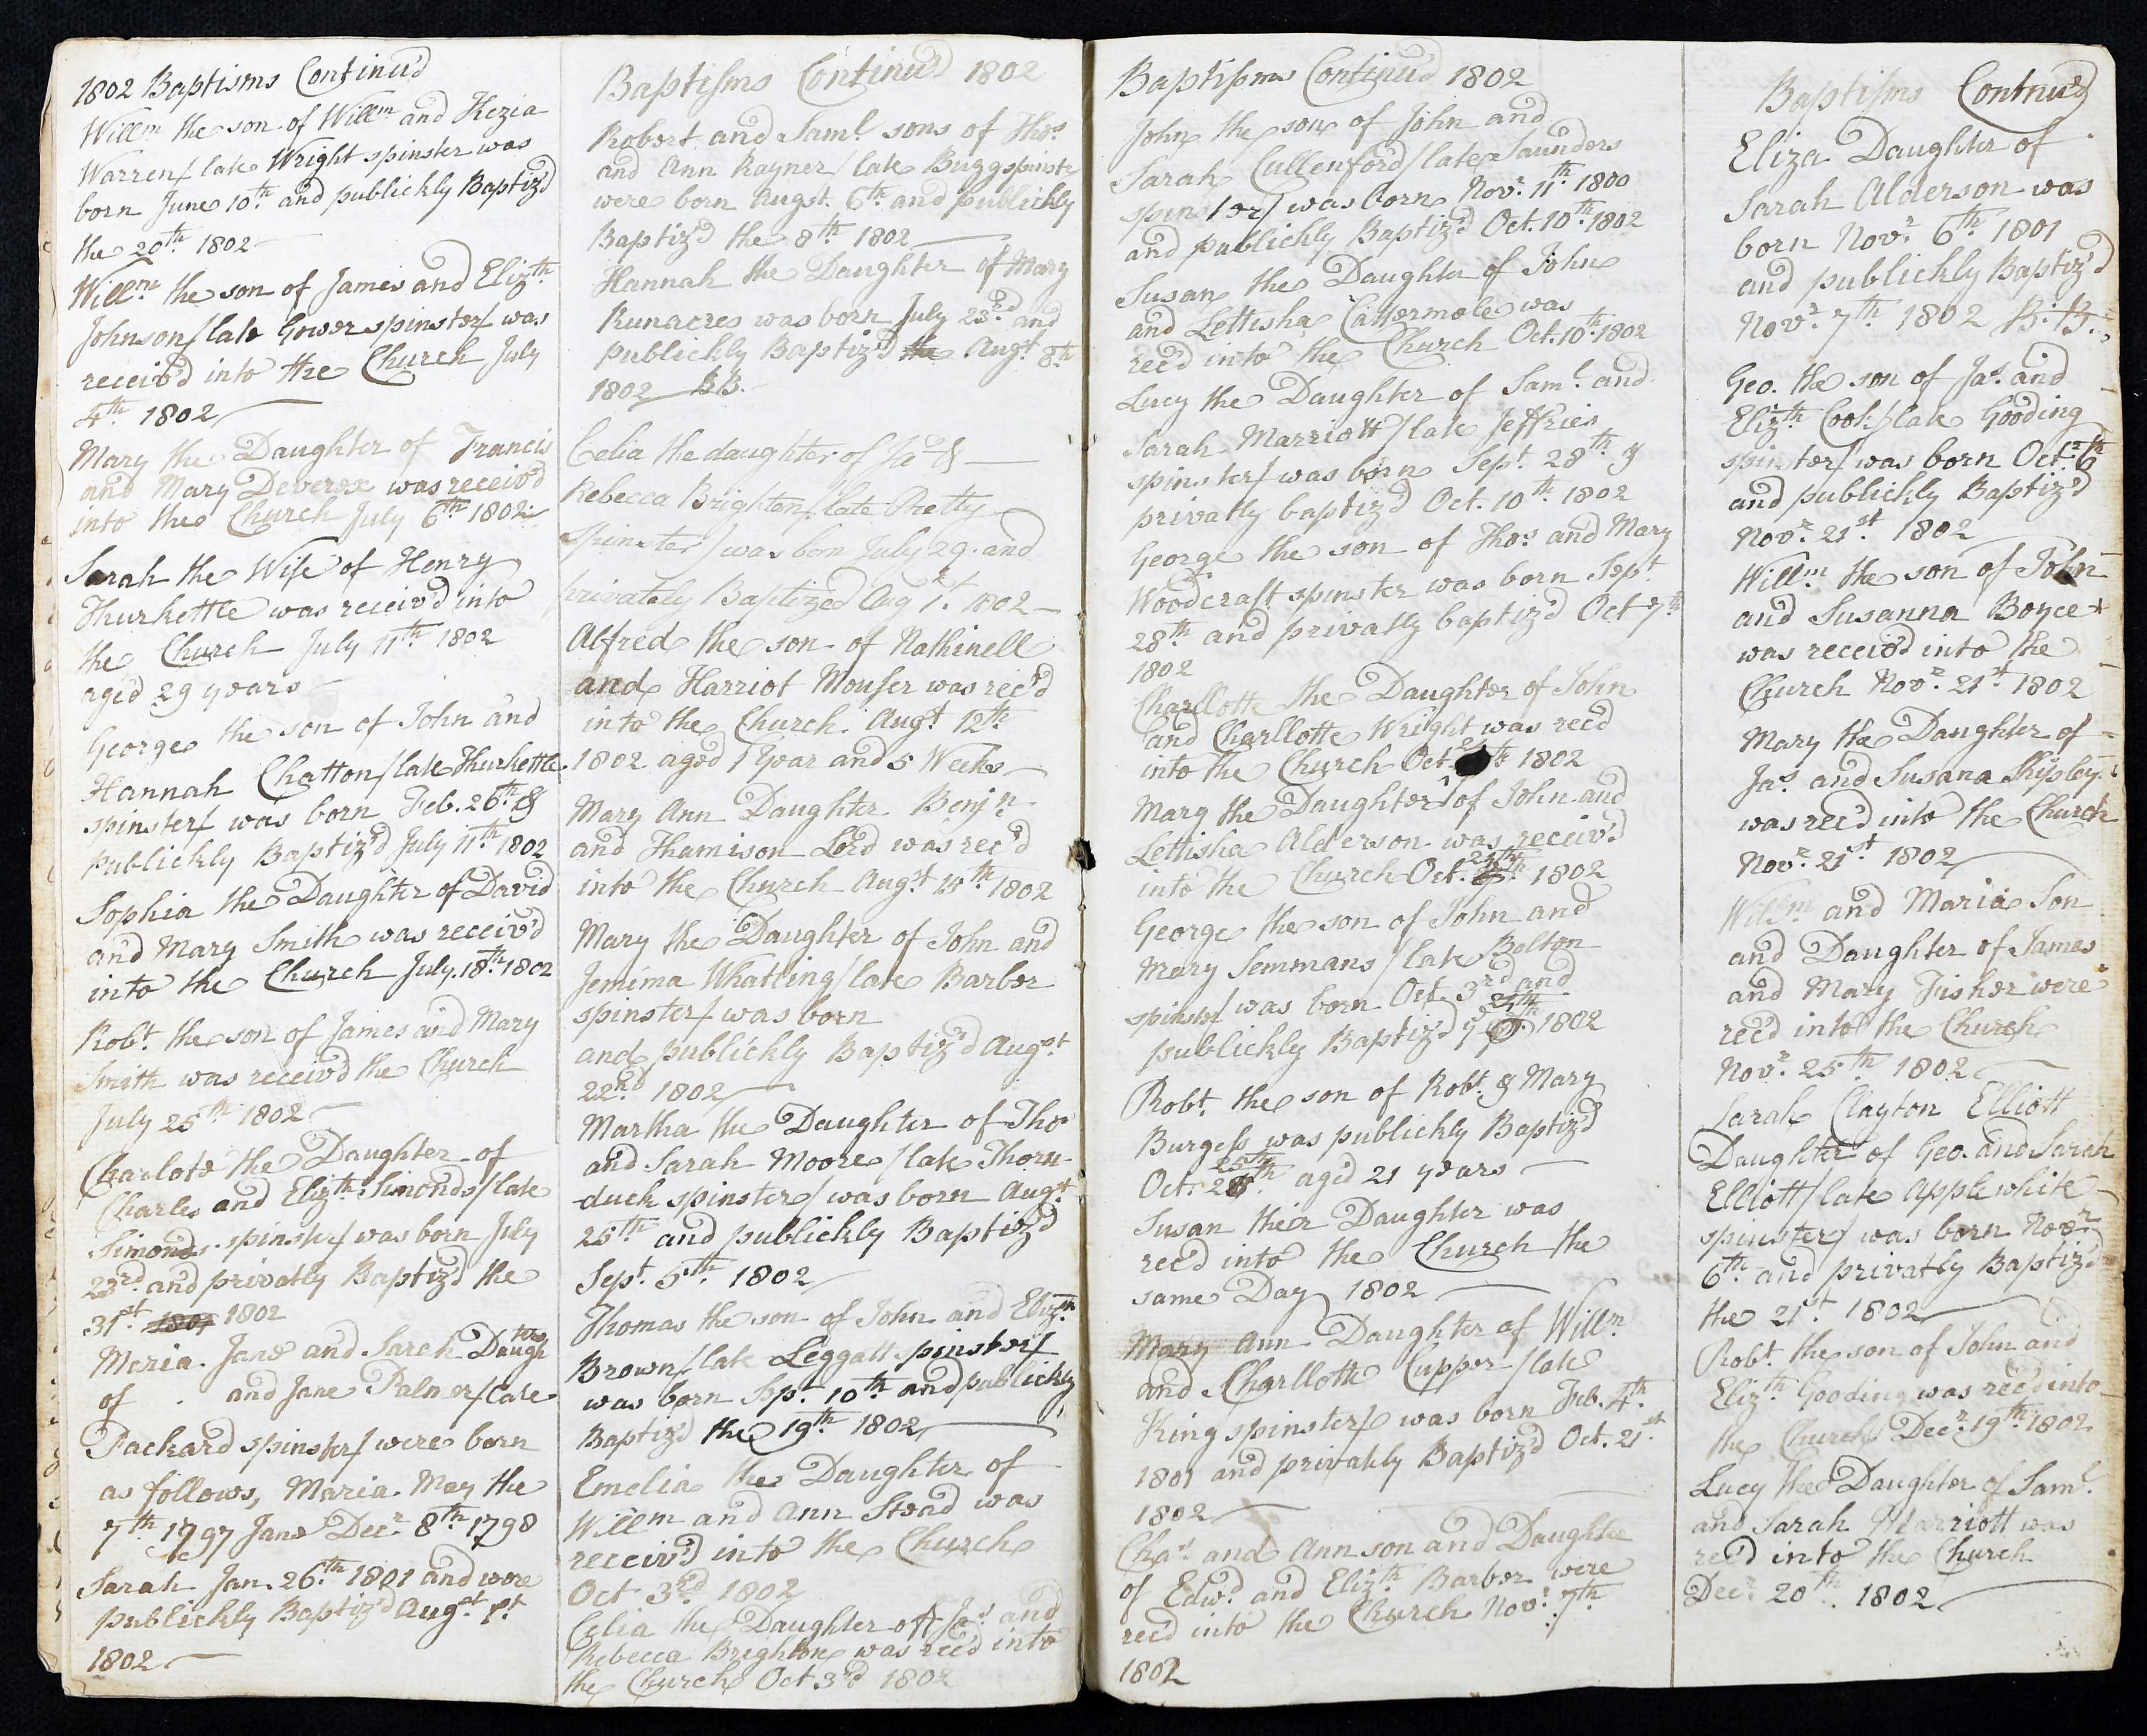 1802 Baptisms Continu'd
Willm the son of Willm and Kezia
Warren/ late Wright spinster was
born June 10th and publickly Baptiz'd
the 20th 1802
Willm the son of James and Elizth
Johnson/ late Gower spinster/ was
receiv'd into the Church July
4th 1802
Mary the Daughter of Francis
and Mary Deverex was receiv'd
into the Church July 6th 1802
Sarah the Wife of Henry
Thurkettle was receiv'd into
the Church July 11th 1802
aged 29 years
George the son of John and
Hannah Chatton/ late Thurkettle
spinster/ was born Feb. 26th &
publickly Baptiz'd July 11th 1802
Sophia the Daughter of David
and Mary Smith was receiv'd
into the Church July. 18th 1802
Robt the son of James and Mary
Smith was receiv'd the Church
July 25th 1802
Charlote the Daughter of
Charles and Elizth Simonds/ late
Simonds. spinster/ was born July
23rd and privatly Baptiz'd the
31st 1801 1802
Maria. Jane and Sarah Daughters
of . and Jane Palmer/ late
Packard spinster/ were born
as follows, Maria May the
7th 1797 Jane Decr 8th 1798
Sarah Jan. 26th 1801 and were
publickly Baptiz'd Augst 1st
1802
Baptisms Continu'd 1802
Robert and Saml sons of Thos
and Ann Rayner/ late Bugg spinstr
were born Augst. 6th and publickly
Baptiz'd the 8th 1802
Hannah the Daughter of Mary
Runacres was born July 23rd and
publickly Baptiz'd the Augt 8th
1802 B.B.
Celia the daughter of Jas &
Rebecca Brighten/ late Pretty
Spinster/ was born July 29. and
privately Baptized Aug 1st 1802
Alfred the son of Nathinell
and Harriot Mouser was rec'd
into the Church. Augt 12th
1802 aged 1 Year and 5 Weeks
Mary Ann Daughter Benjn
and Thamison Lord was rec'd
into the Church Augst 15th 1802
Mary the Daughter of John and
Jemima Whatling/ late Barber
spinster/ was born
and publickly Baptiz'd Augst
22nd 1802
Martha the Daughter of Thos
and Sarah Moore/ late Thorn
duck spinster/ was born Augt
25th and publickly Baptiz'd
Sept. 5th 1802
Thomas the son of John and Elizth
Brown/ late Leggatt spinster/
was born Sept 10th and publickly
Baptiz'd the 19th 1802
Emelia the Daughter of
Willm and Ann Stead was
receiv'd into the Church
Oct. 3rd 1802
Celia the Daughter of Jas and
Rebecca Brighton was rec'd into
the Church Oct 3rd 1802
Baptisms Continu'd 1802
John the son of John and
Sarah Cullenford/ late Saunders
spinster/ was born Novr 11th 1800
and publickly Baptiz'd Oct. 10th 1802
Susan the Daughter of John
and Lettisha Cattermole was
rec'd into the Church Oct. 10th 1802
Lucy the Daughter of Saml and
Sarah Marriott/ late Jeffries
spinster/ was born Sept 28th &
privatly baptiz'd Oct. 10th 1802
George the son of Thos and Mary
Woodcraft spinster was born Sept
28th and privatly baptiz'd Oct 7th
1802
Charllotte the Daughter of John
and Charllotte Wright was rec'd
into the Church Oct. th 1802
Mary the Daughter of John and
Lettisha Alderson was receiv'd
into the Church Oct. 24th 1802
George the son of John and
Mary Semmans/ late Bolton
spinster/ was born Oct. 3rd and
publickly Baptiz'd ye 24th 1802
Robt the son of Robt & Mary
Burgess was publickly Baptiz'd
Oct. 25th aged 21 years
Susan their Daughter was
rec'd into the Church the
same Day 1802
Mary Ann Daughter of Willm
and Charllotte Cupper/ late
King spinster/ was born Feb. 4th
1801 and privatly Baptiz'd Oct. 21st
1802
Chas and Ann son and Daughter
of Edwd and Elizth Barber were
rec'd into the Church Novr 7th
1802
Baptisms Contnu'd
Eliza Daughter of
Sarah Alderson was
born Novr 6th 1801
and publickly Baptiz'd
Novr 7th 1802 B:B:
Geo. the son of Jas and
Elizth Cook/ late Gooding
spinster/ was born Octr 6th
and publickly Baptiz'd
Novr 21st 1802
Willm the son of John
and Susanna Boyce
was receiv'd into the
Church Novr 21st 1802
Mary the Daughter of
Jas and Susana Shipley
was rec'd into the Church
Novr 21st 1802
Willm and Maria Son
and Daughter of James
and Mary Fisher were
rec'd into the Church
Novr 25th 1802
Sarah Clayton Elliott
Daughter of Geo. and Sarah
Elliott/ late Applewhite
spinster/ was born Novr
6th and privatly Baptiz'd
the 21st 1802
Robt the son of John and
Elizth Gooding was rec'd into
the Church Decr 19th 1802
Lucy the Daughter of Saml
and Sarah Marriott was
rec'd into the Church
Decr 20th 1802